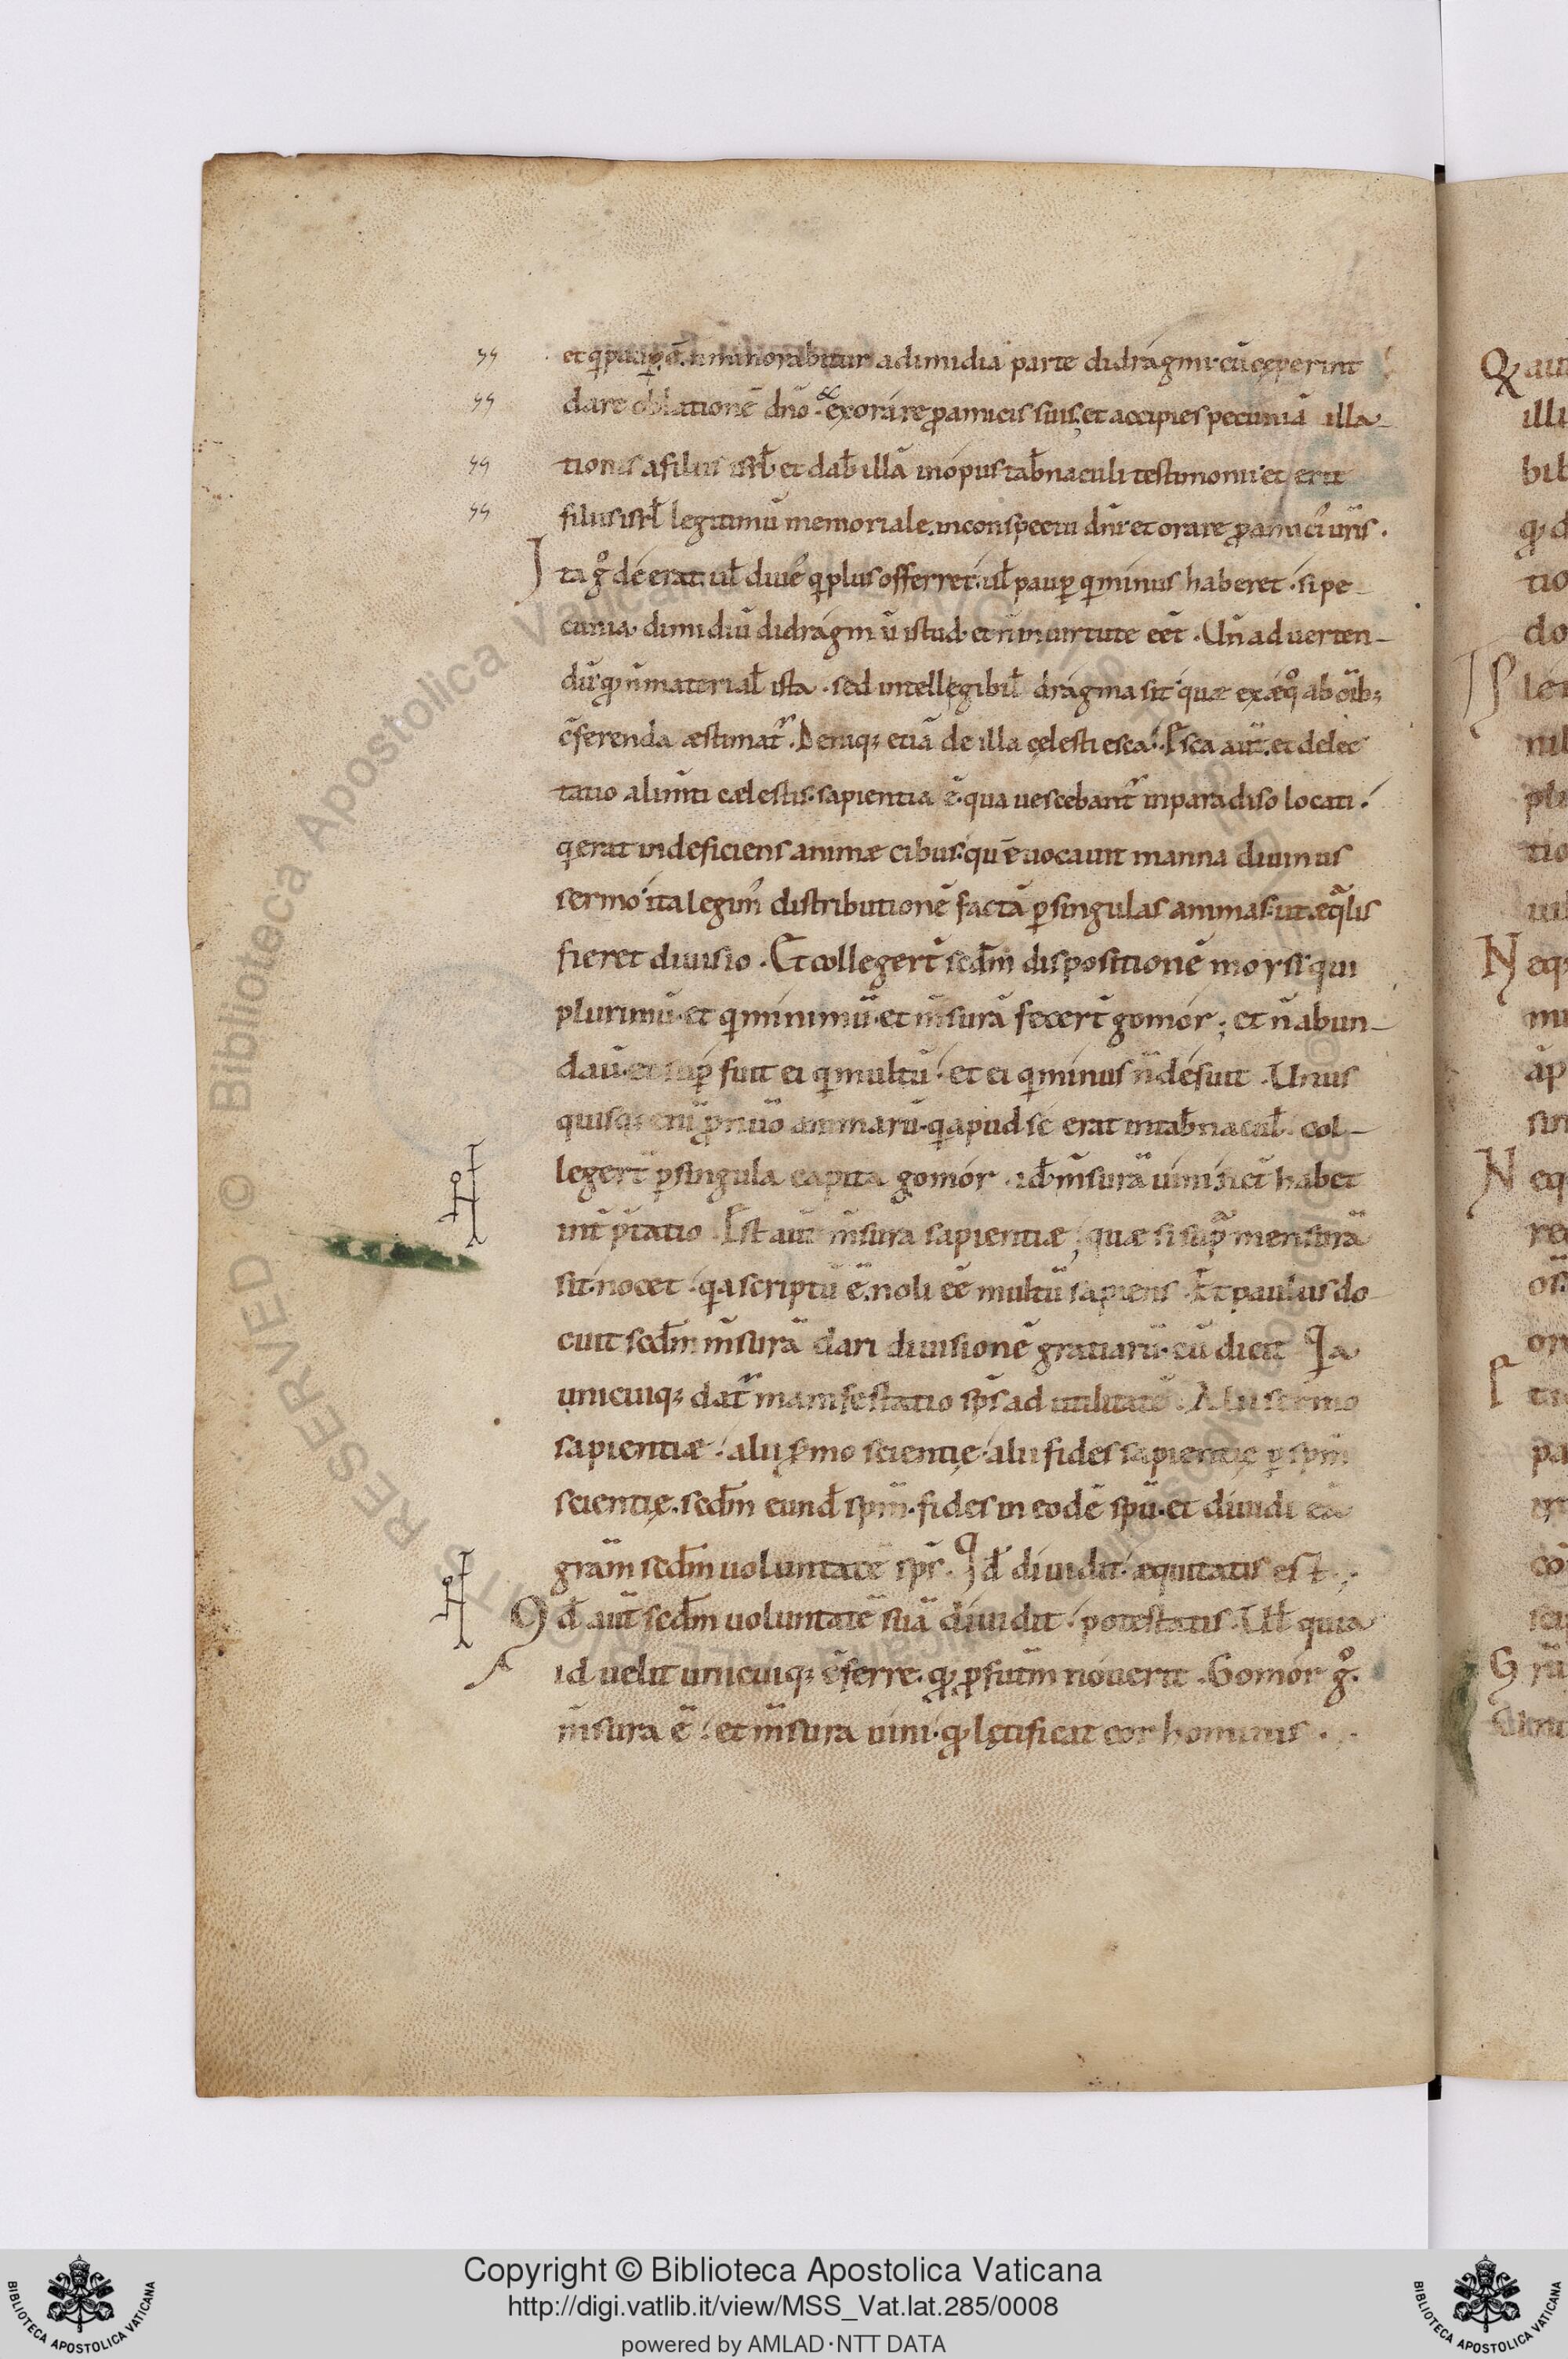 et q paup̱ ē. n̄ minorabitur a dimidia parte didragmi. cū cęperint
dare oblationē dn̄o. & exorare ꝓ amicis suis; et accipies pecuniā illa-
tionis a filiis isrł. et dab̄ illā in opus tab̄naculi testimonii. et erit
filiis isrł legitimū memoriale. in conspectu dn̄i. et orare ꝓ amicis ur̄is.
Ita gͦ de erat. uł diues q plus offerret. uł paup̱ q minus haberet. si pe-
cunia dimidiū didragmū istud. et n̄ in uirtute eēt. Un̄ aduerten-
dū. qđ n̄ material̄ ista. sed intellegibil̄ dragma sit. quæ ex æqͦ ab om̄ib;
c̄ferenda æstimat᷑. Deniq; etiā de illa celesti esca. Esca aut̄. et delec
tatio alim̄ti cælestis. sapientia ē. qua uescebant᷑ in paradiso locati.
q erat indeficiens animæ cibus. quē uocauit manna diuinus
sermo. ita legim᷒ distributionē factā p̱ singulas animas. ut æqͣlis
fieret diuisio. Et collegert̄ scd̄m dispositionē moysi. qui
plurimū. et q minimū. et m̄surā fecert̄ gomor; et n̄ abun-
dau̅. et sup̱fuit ei q multū. et ei q minus n̄ defuit. Unus
quisq; enī ꝓ nu̅o animarū. q apud se erat in tab̄nacul̄. col-
legert̄ p̱ singula capita gomor. id̄ m̄surā uini. n̄ et̄ habet
int̄p̱tatio. Est aut̄ m̄sura sapientiæ; quæ si supͣ mensurā
sit. nocet. qͣ scriptū ē. noli eē multū sapiens. Et paulus do
cuit scd̄m m̄surā dari diuisionē gratiarū. cū dicit Ia
unicuiq; dat᷑ manifestatio sp̄s ad utilitatē. Alii sermo
sapientiæ. alii s̄mo scientię. alii fides sapientię p̱ sp̄m
scientię. scd̄m eund̄ sp̄m. fides in eodē sp̄u. et diuidi eā
gr̄am scd̄m uoluntatē sp̄s. Qd̄ diuidit. æquitatis est.;
Qd̄ aut̄ scd̄m uoluntatē suā diuidit. potestatis. Uł quia
id uelit unicuiq; c̄ferre. qđ ꝓfutm̄ nouerit. Gomor gͦ.
m̄sura ē. et m̄sura uini. qđ lętificat cor hominis.
Copyright © Biblioteca Apostolica Vaticana
http://digi.vatlib.it/view/MSS_Vat.lat.285/0008
powered by AMLAD·NTT DATA